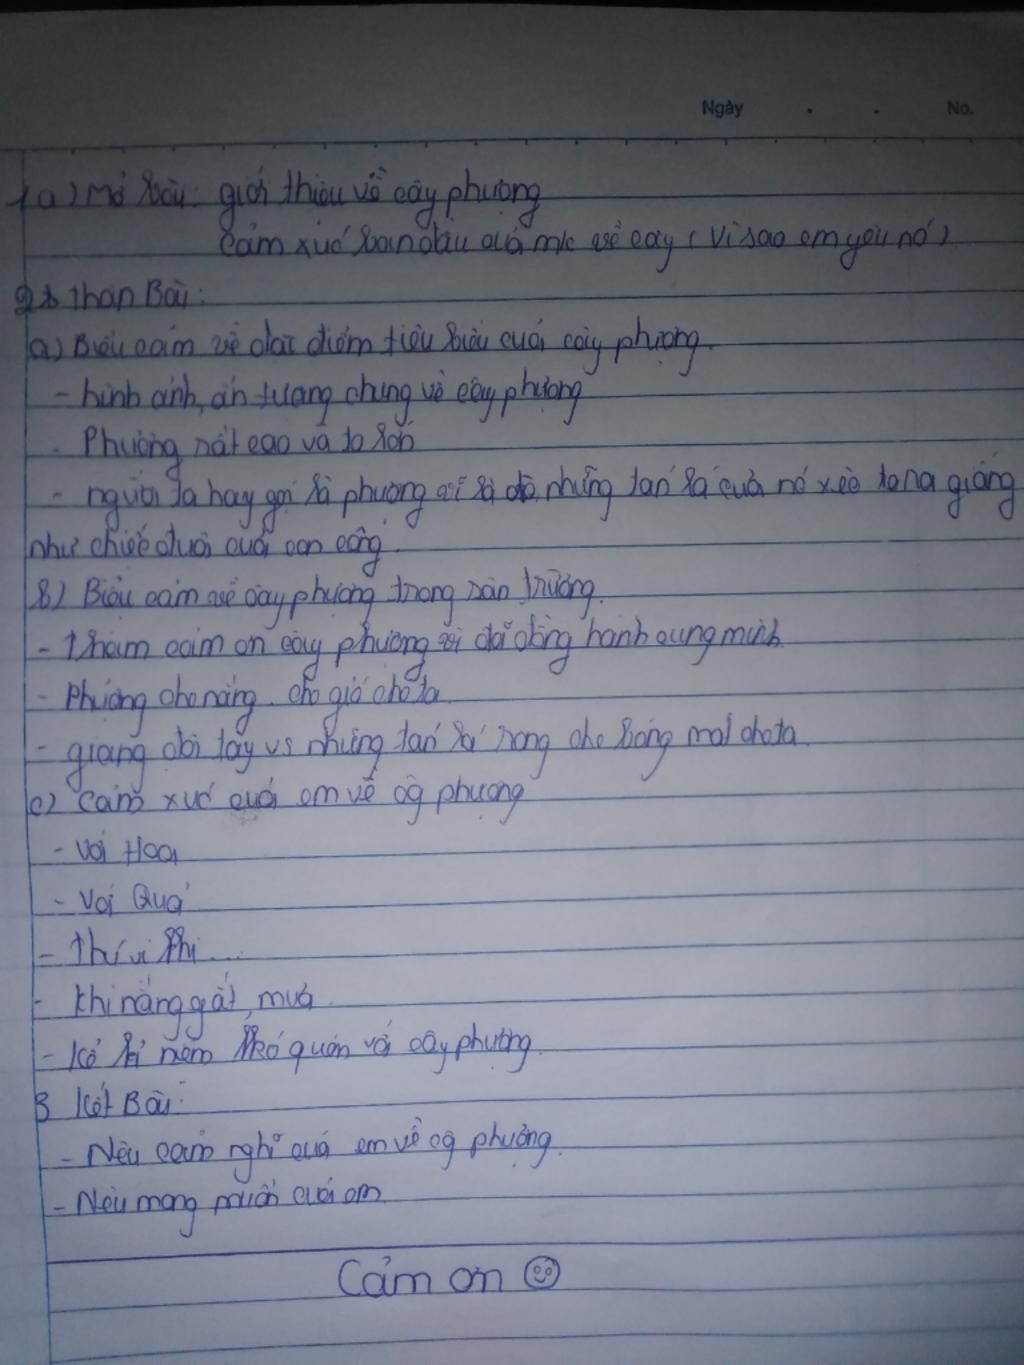 Ngày . . No.
1 a) Mở bài: giới thiệu về cây phượng
Cảm xúc ban đầu của mk về cây ( Vì sao em yêu nó )
2 Thân Bài:
a) Biểu cảm về đặc điểm tiêu biểu của cây phượng.
- hình ảnh, ấn tượng chung về cây phượng
- Phượng rất cao và to lớn
- người ta hay gọi là phượng vĩ là những tán lá của nó xòe to ra giống
như chiếc đuôi của con công.
b) Biểu cảm về cây phượng trong sân trường.
- Thầm cảm ơn cây phượng vì đã đồng hành cùng mình
- Phượng che nắng, che gió cho ta
- giang đôi tay vs những tán lá rộng che bóng mát cho ta.
c) Cảm xúc của em về cây phượng
- Với Hoa
- Với Quả
- Thú vị khi ...
- Khi nắng gắt, mưa
- Kể kỉ niệm khó quên với cây phượng.
3 Kết Bài:
- Nêu cảm nghĩ của em về cây phượng.
- Nêu mong muốn của em
Cảm ơn ☺